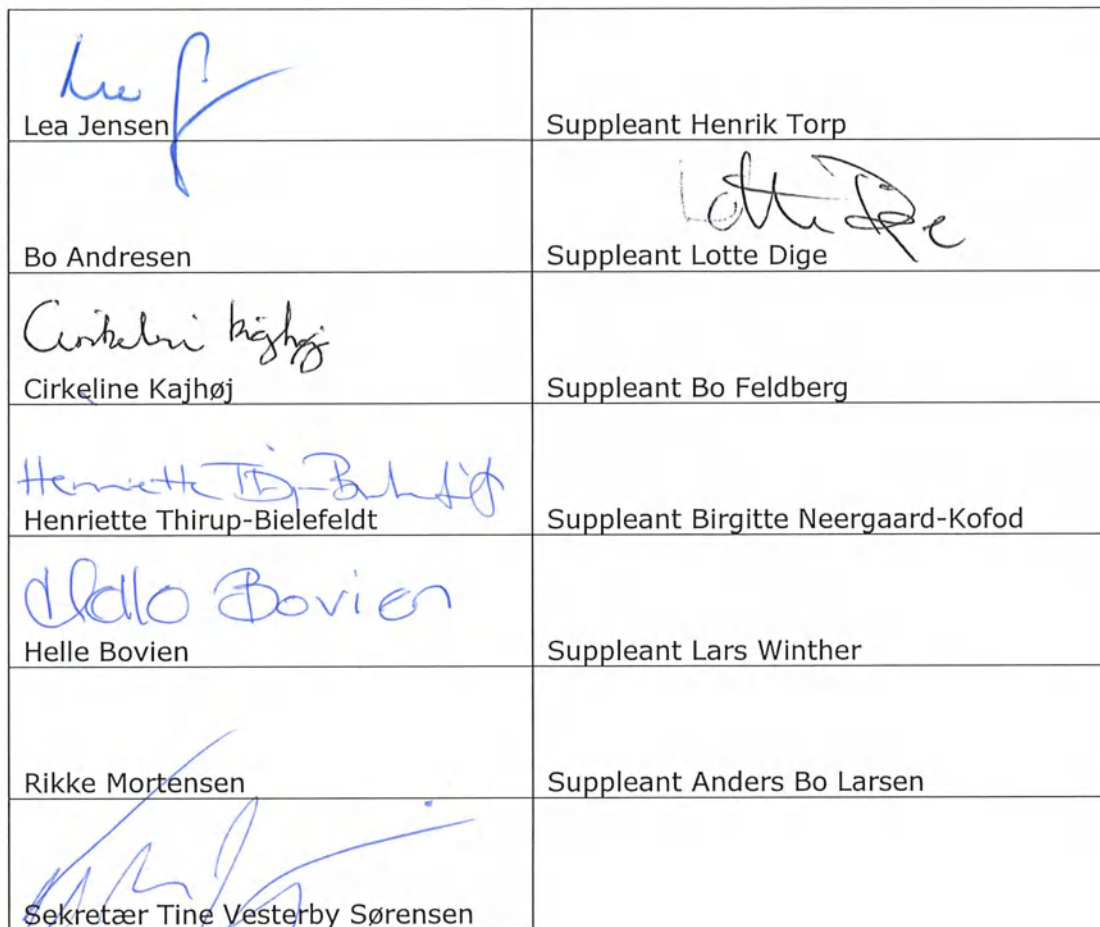 Lea Jensen
Suppleant Henrik Torp
Bo Andresen
Lotte Dige
Suppleant Lotte Dige
Cirkeline Kajhøj
Cirkeline Kajhøj
Suppleant Bo Feldberg
Henriette
Henriette Thirup-Bielefeldt
Suppleant Birgitte Neergaard-Kofod
Helle Bovien
Helle Bovien
Suppleant Lars Winther
Rikke Mortensen
Suppleant Anders Bo Larsen
Sekretær Tine Vesterby Sørensen